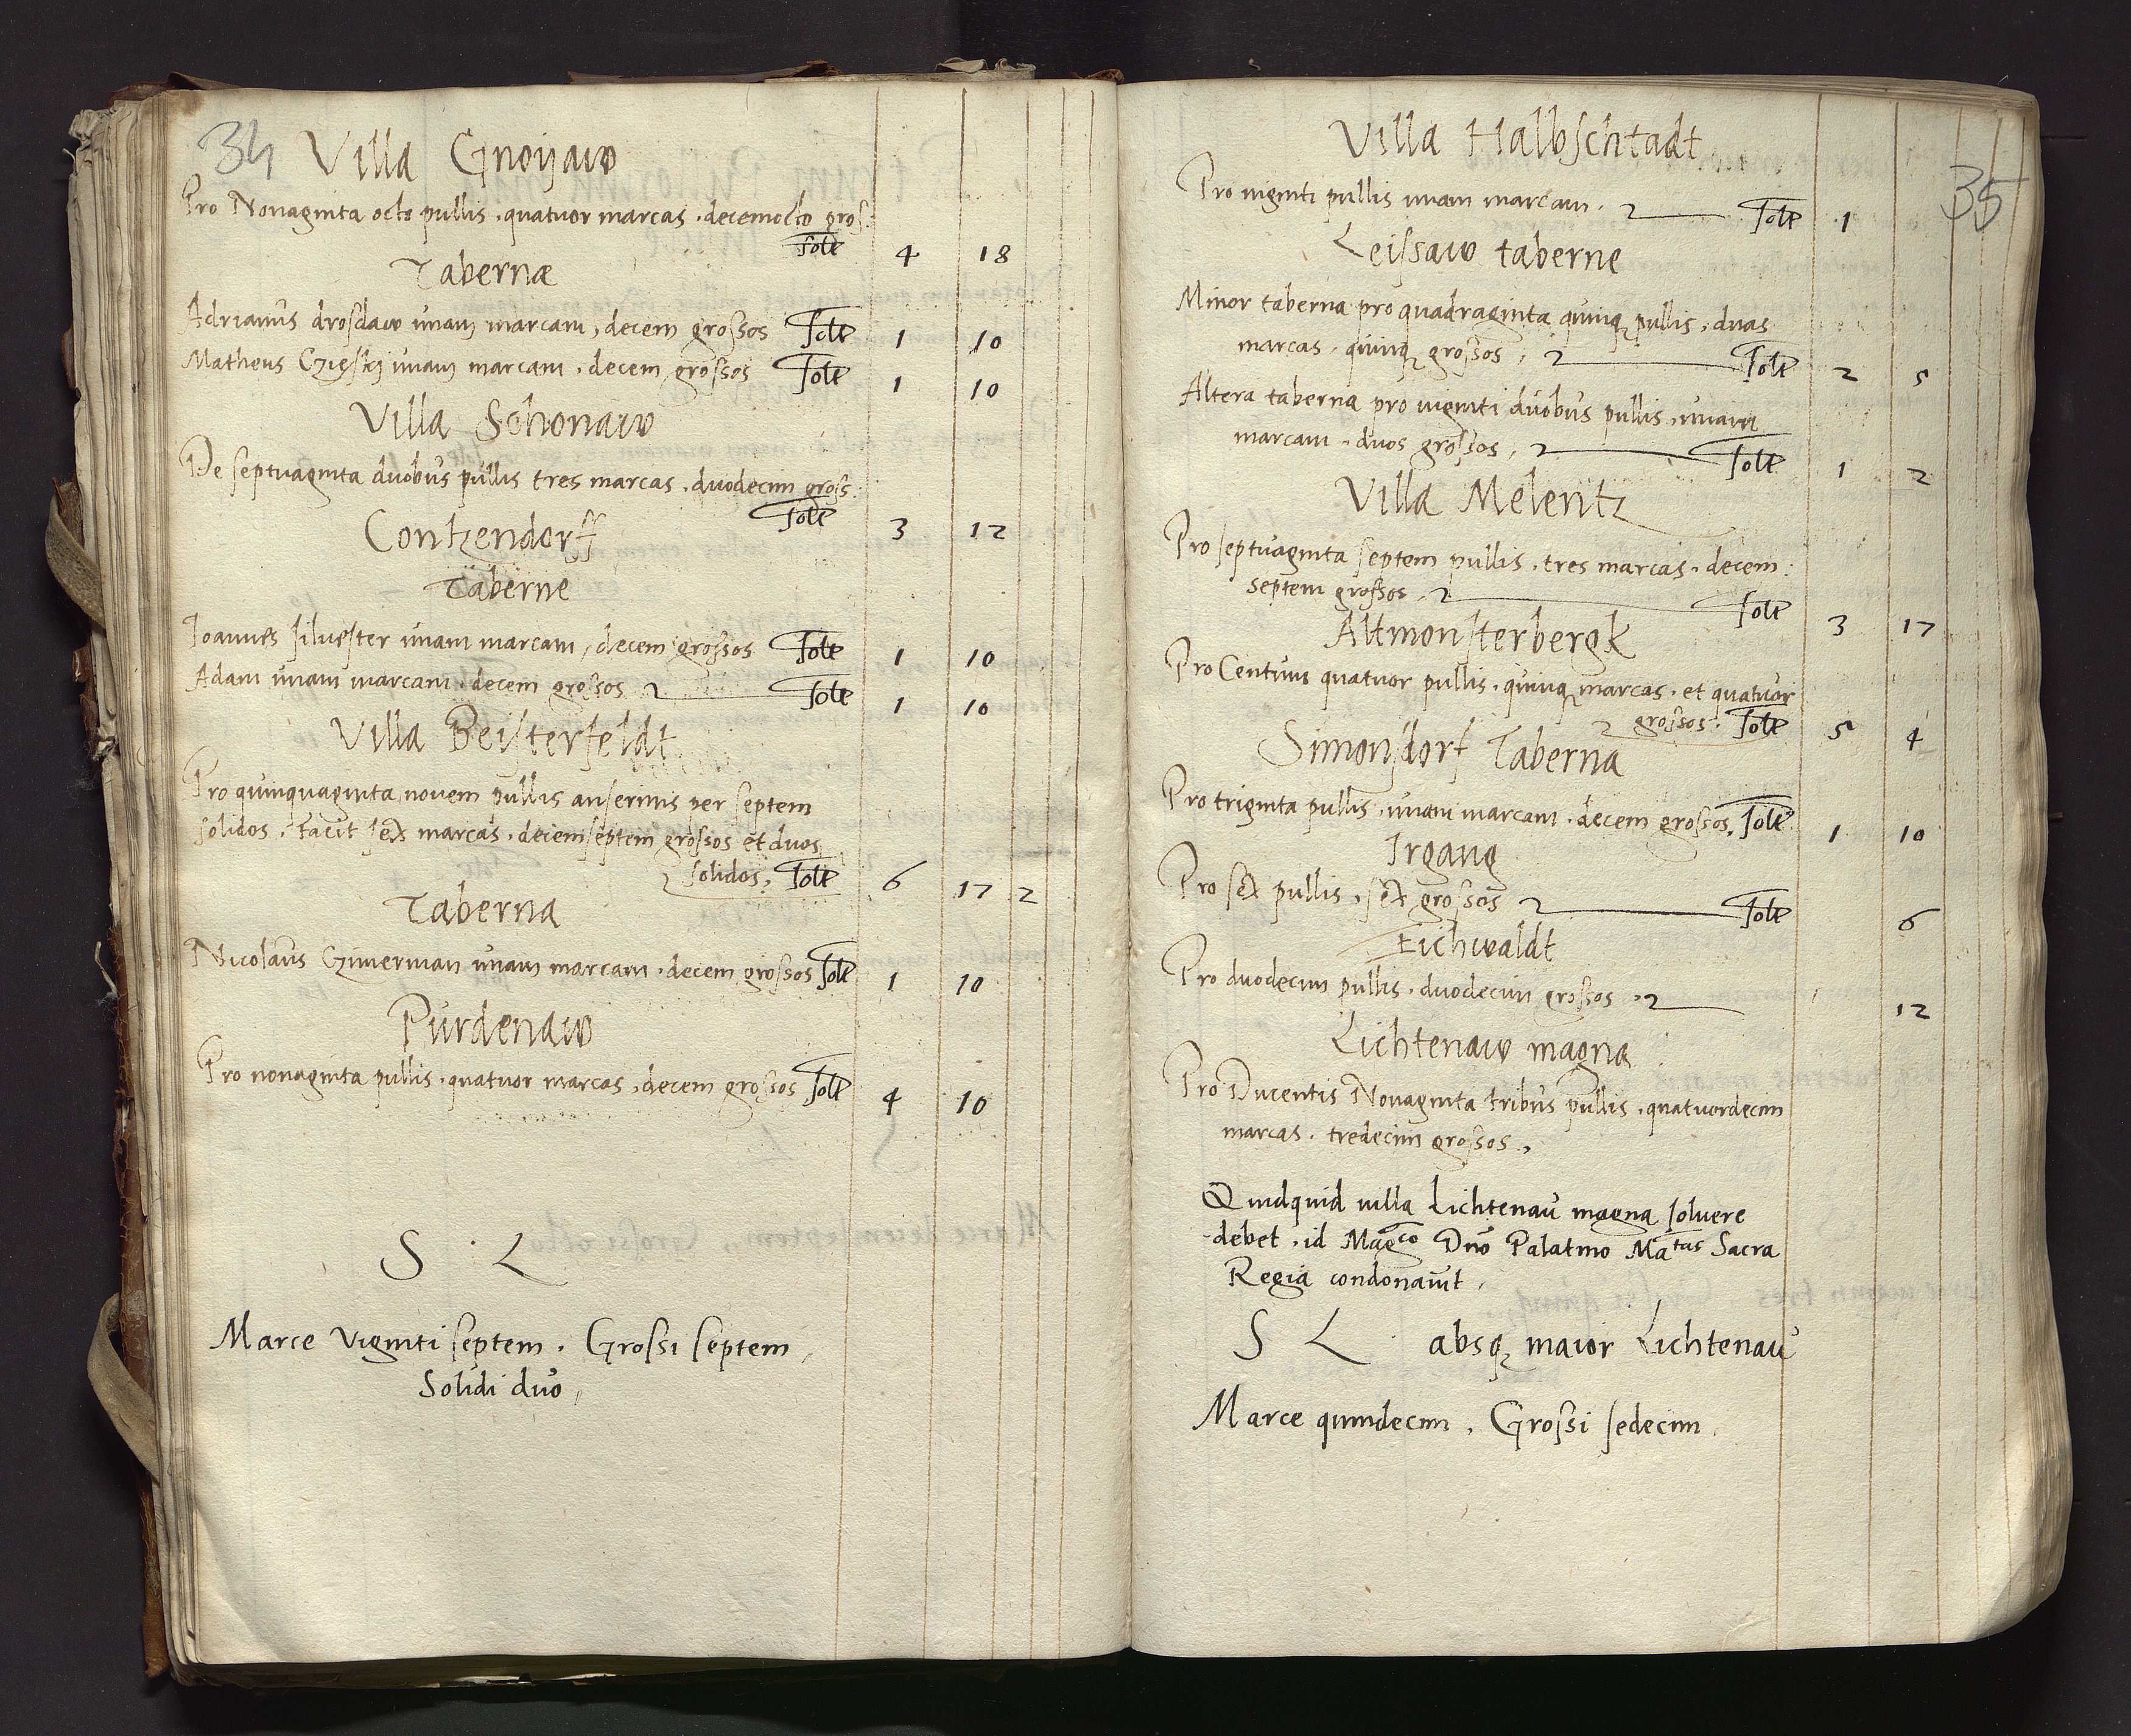 34 Villa Gnoijaw
Pro Nonaginta octo pullis, quatuor marcas, decemocto gros:
Solt 4 18
Tabernæ
Adrianus drosdaw unam marcam, decem grossos Solt 1 10
Matheus unam marcam, decem grossos Solt 1 10
Villa Schonaw
De septuaginta duobus pullis tres marcas, duodecim gross:
Solt 3 12
Contzendorff
Taberne
Joannes silvester unam marcam, decem grossos Solt 1 10
Adam unam marcam, decem grossos Solt 1 10
Villa Beisterfeldt
Pro quinquaginta novem pullis anserinis per septem
solidos, facit sex marcas, decemseptem grossos et duos
solidos, Solt 6 17 2
Taberna
Nicolaus Czimerman unam marcam, decem grossos Solt 1 10
Purdenaw
Pro nonaginta pullis, quatuor marcas, decem grossos Solt 4 10
S L
Marce Viginti septem, Grossi septem,
Solidi duo,
35
Villa Halbschtadt
Pro viginti pullis unam marcam. Solt 1
Leissaw taberne
Minor taberna pro quadraginta quinq pullis, duas
marcas, quinq grossos, Solt 2 5
Altera taberna pro viginti duobus pullis, unam
marcam, duos grossos, Solt 1 2
Villa Melentz
Pro septuaginta septem pullis, tres marcas, decem:
septem grossos, Solt 3 17
Altmonsterbergk
Pro Centum quatuor pullis, quinq marcas, et quatuor
grossos. Solt 5 4
Simonsdorf Taberna
Pro triginta pullis, unam marcam, decem grossos, Solt 1 10
Irgang
Pro sex pullis, sex grossos Solt 6
Eichwaldt
Pro duodecim pullis, duodecim grossos 12
Lichtenaw magna
Pro Ducentis Nonaginta tribus pullis, quatuordecim
marcas, tredecim grossos,
Quidquid villa Lichtenau magna solvere
debet, id Magco Dno Palatino Matas Sacra
Regia condonavit,
S L absq maior Lichtenau
Marce quindecim, Grossi sedecim,